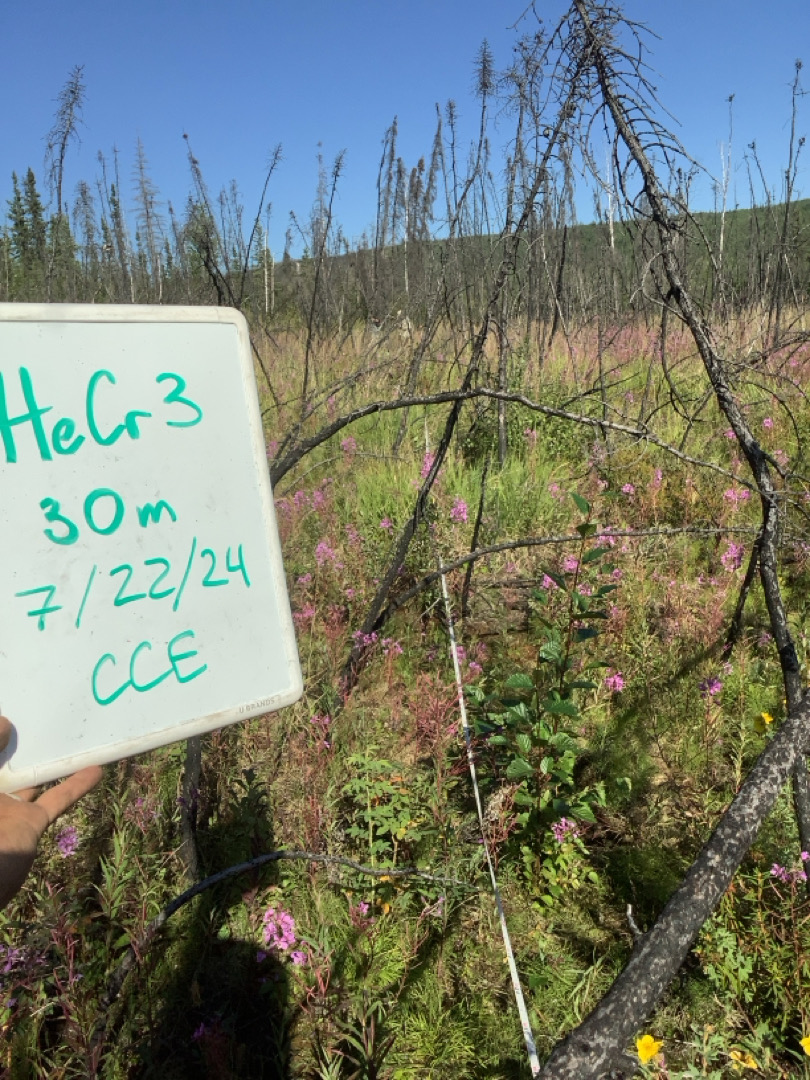 HeCr3
30m
7/22/24
CCE
U BRANDS